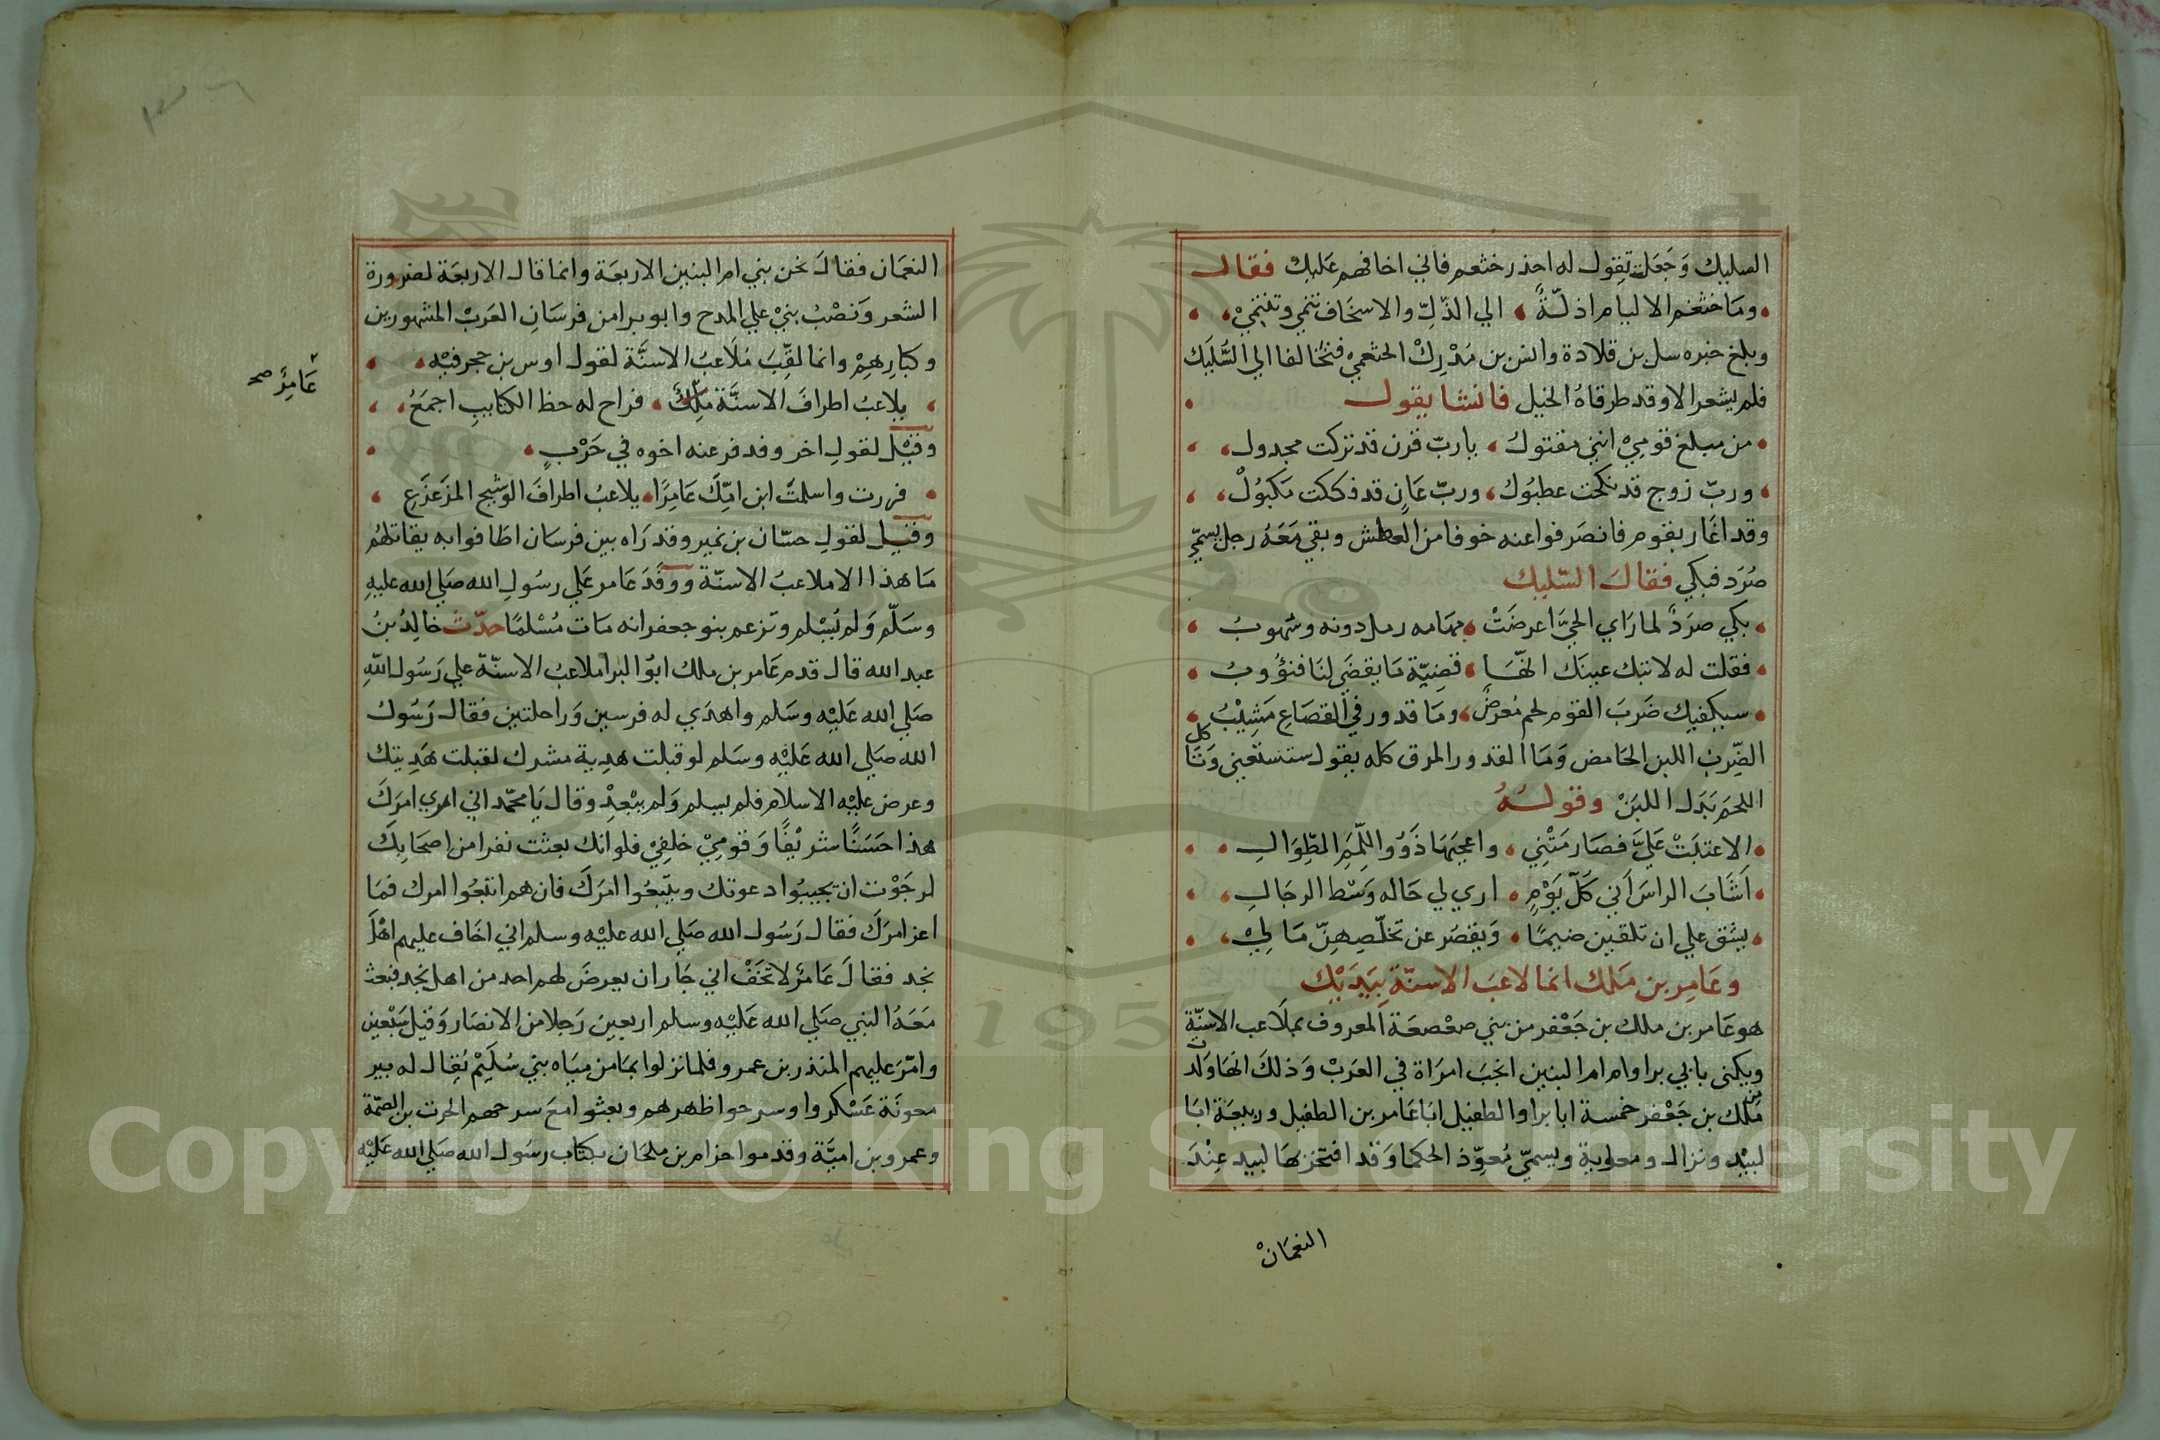 السليك وَجَعَلت تقول له احذر خثعم فاني اخافهم عَليك فقال
وما خثعم الا ليام اذلّة الي الذلّ والاسخَاف تنمي وتنتمي
وبلغ خبره سل بن قلادة وانس بن مَدْرِكْ الخثعمي فتخالفا الي السُّليَك
فلم يشعر الا وقد طرقاهُ الخيل فانشا يقول
من مبلغ قومي انني مقتولُ يا ربّ قرن قد تركت مجدول
وربّ زوج قد نكحت عطبُول وربّ عَانٍ قد فككت مَكبُولْ
وقد اغَار بقوم فانصَرفوا عنه خوفا من العطش وبقي مَعَهُ رجل يسمّي
صُرَد فبكي فقالَ السّليك
بكي صرَدٌ لما رَاي الحيَّ اعرضَتْ مهَامه رمل دونه وسُهوبُ
فقلت له لا تبك عينَك انّهَا قضِيّة مَا يقضَي لنَا فنؤُوبُ
سيكفيك ضَربَ القوم لحم مُعرضٌ ومَا قدور في القصَاعِ مَشِيْبُ
الضّرب اللبن الحَامض وَمَا القدور المرق كله يقول ستستغني وَتَاكل
اللحمَ بَدَل اللبَنْ وقولُهُ
الا عتبَتْ عَليَّ فصَارمَتْنِي واعجبَهَا ذَوُو اللّمَمِ الطّوَالِ
اَشَابَ الراسَ اَني كَلّ يَوْمٍ اري لي خَاله وَسْط الرجَالِ
يشق علي ان تلقين ضيمًا وَيقصَر عن تخلّصِهِنّ مَا لِيْ
وعَامِر بن مَلك انما لاعَبَ الاسنّة بيَدَيْك
هو عَامر بن ملك بن جَعْفر من بني صعْصعَة المعروف بملَاعب الاسنّة
ويكنى بابي برا وام ام البنين انجبَ امرَاة في العَربْ وَذلكَ انهَا ولدت
من مَلك بن جَعْفر خمسة ابا برا والطفيل ابَا عَامر بن الطفيل وربيعَة ابَا
لبيْد ونزال ومعاوية ويسميّ مُعوّذ الحكما وَقد افتخر بهَا لبيد عِنْدَ
النعْمَانْ
النعمَان فقالَ نحن بني ام البنين الاربعَة وانما قال الاربعَة لضرورة
الشعر وَنصْبُ بنيْ علي المدح وابو برا من فرسَانِ العَربْ المشهورين
وكبارِهِمْ وانما لقِّبَ مُلَاعبُ الاسنَّة لقول اوس بن حجر فيْه
يلاعبُ اطرافَ الاسنَّة مَلِكٌ فراح له حظ الكتايبِ اجمَعُ
عَامِرٌ صح
وقيْل لقولِ اخر وقد فر عنه اخوه في حَرْبٍ
فررت واسلمتَ ابن امّكَ عَامِرًا يلاعبُ اطرافَ الوَشيج المزَعزَعِ
وقيل لقولِ حسّان بن نمير وقد رَاه بين فرسَان اطَافوا به يقاتلهُم
مَا هذا الا ملاعبُ الاسنّة ووَفَدَ عَامر عَلي رسُولِ الله صَلي الله عليهِ
وسَلّم وَلم يُسْلم وتزعم بنو جعفر انه مَات مُسْلمًا حدّث خالِدُ بنُ
عبد الله قال قدم عَامر بن ملك ابوُ البرا ملاعبُ الاسنّة علي رَسُول اللهِ
صَلي الله عَليْه وسَلم واهدَي له فرسين وَراحلتين فقال رَسُول
الله صَلي الله عَليْه وسَلم لو قبلت هدية مشرك لقبلت هَديتك
وعرض عليْه الاسلام فلم يسلم وَلم يبْعدْ وقال يَا محمّد اني اري امرَكَ
هذا حَسَنًا شريْفًا وَقومِيْ خلفِيْ فلو انك بعثت نفرا من اصحَابِكَ
لرجَوْت ان يجيبُوا دعوتك ويتّبعُوا امرَكَ فان هم اتبعُوا امرك فمَا
اعز امرَكَ فقال رَسُول الله صَلي الله عليْه وسلم اني اخَاف عليهم اهْلَ
نجد فقالَ عَامرٌ لا تَخَفْ اني جَار ان يعرضَ لهم احد من اهل نجد فبعث
مَعَهُ النبي صَلي الله عَليْه وسلم اربعين رَجلا من الانصَار وَقيل سَبْعين
وامّرَ عليهم المنذر بن عمرو فلما نزلوا بمَا من ميَاه بني سُليَمْ يُقال له بير
معونَة عَسْكروا وسرحوا ظهرهم وبعثوا معَ سرحهم الحرث بن الصمّة
وعمرو بن اميَّة وقدموا حزام بن ملحَان بكتَاب رسَول الله صَلي الله عَليْه